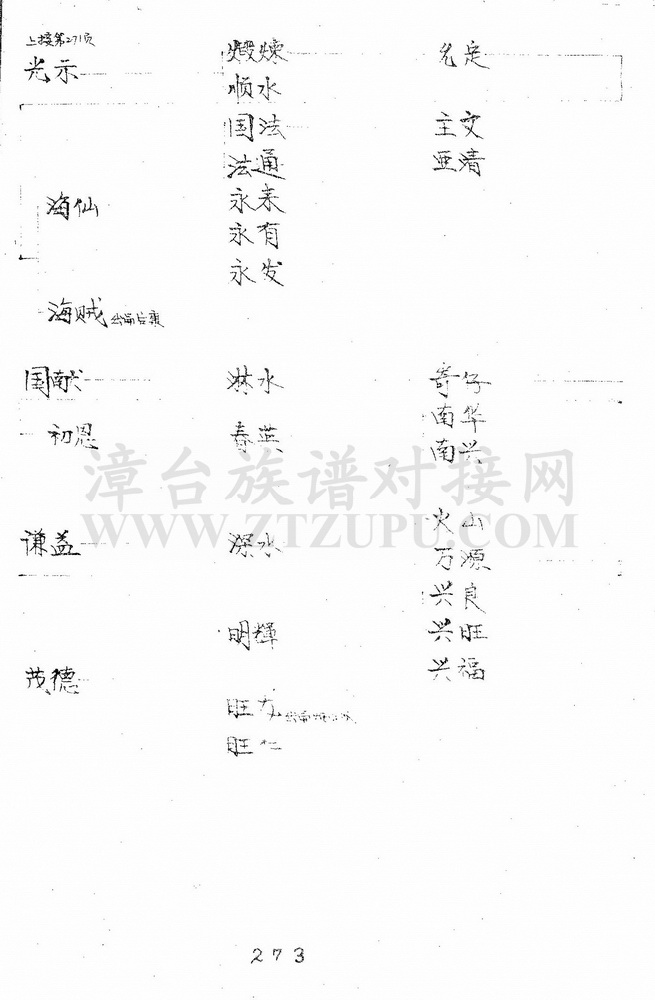 上接第271页
光示 煅炼 光定
顺水
国法 主文
法通 亚清
海仙 永来
永有
永发
海贼
国献 淋水 寄仔
南华
初恩 春英 南兴
漳台族谱对接网
WWW.ZTZUPU.COM
火山
谦益 深水 万源
兴良
明辉 兴旺
茂德 兴福
旺
旺仁
273